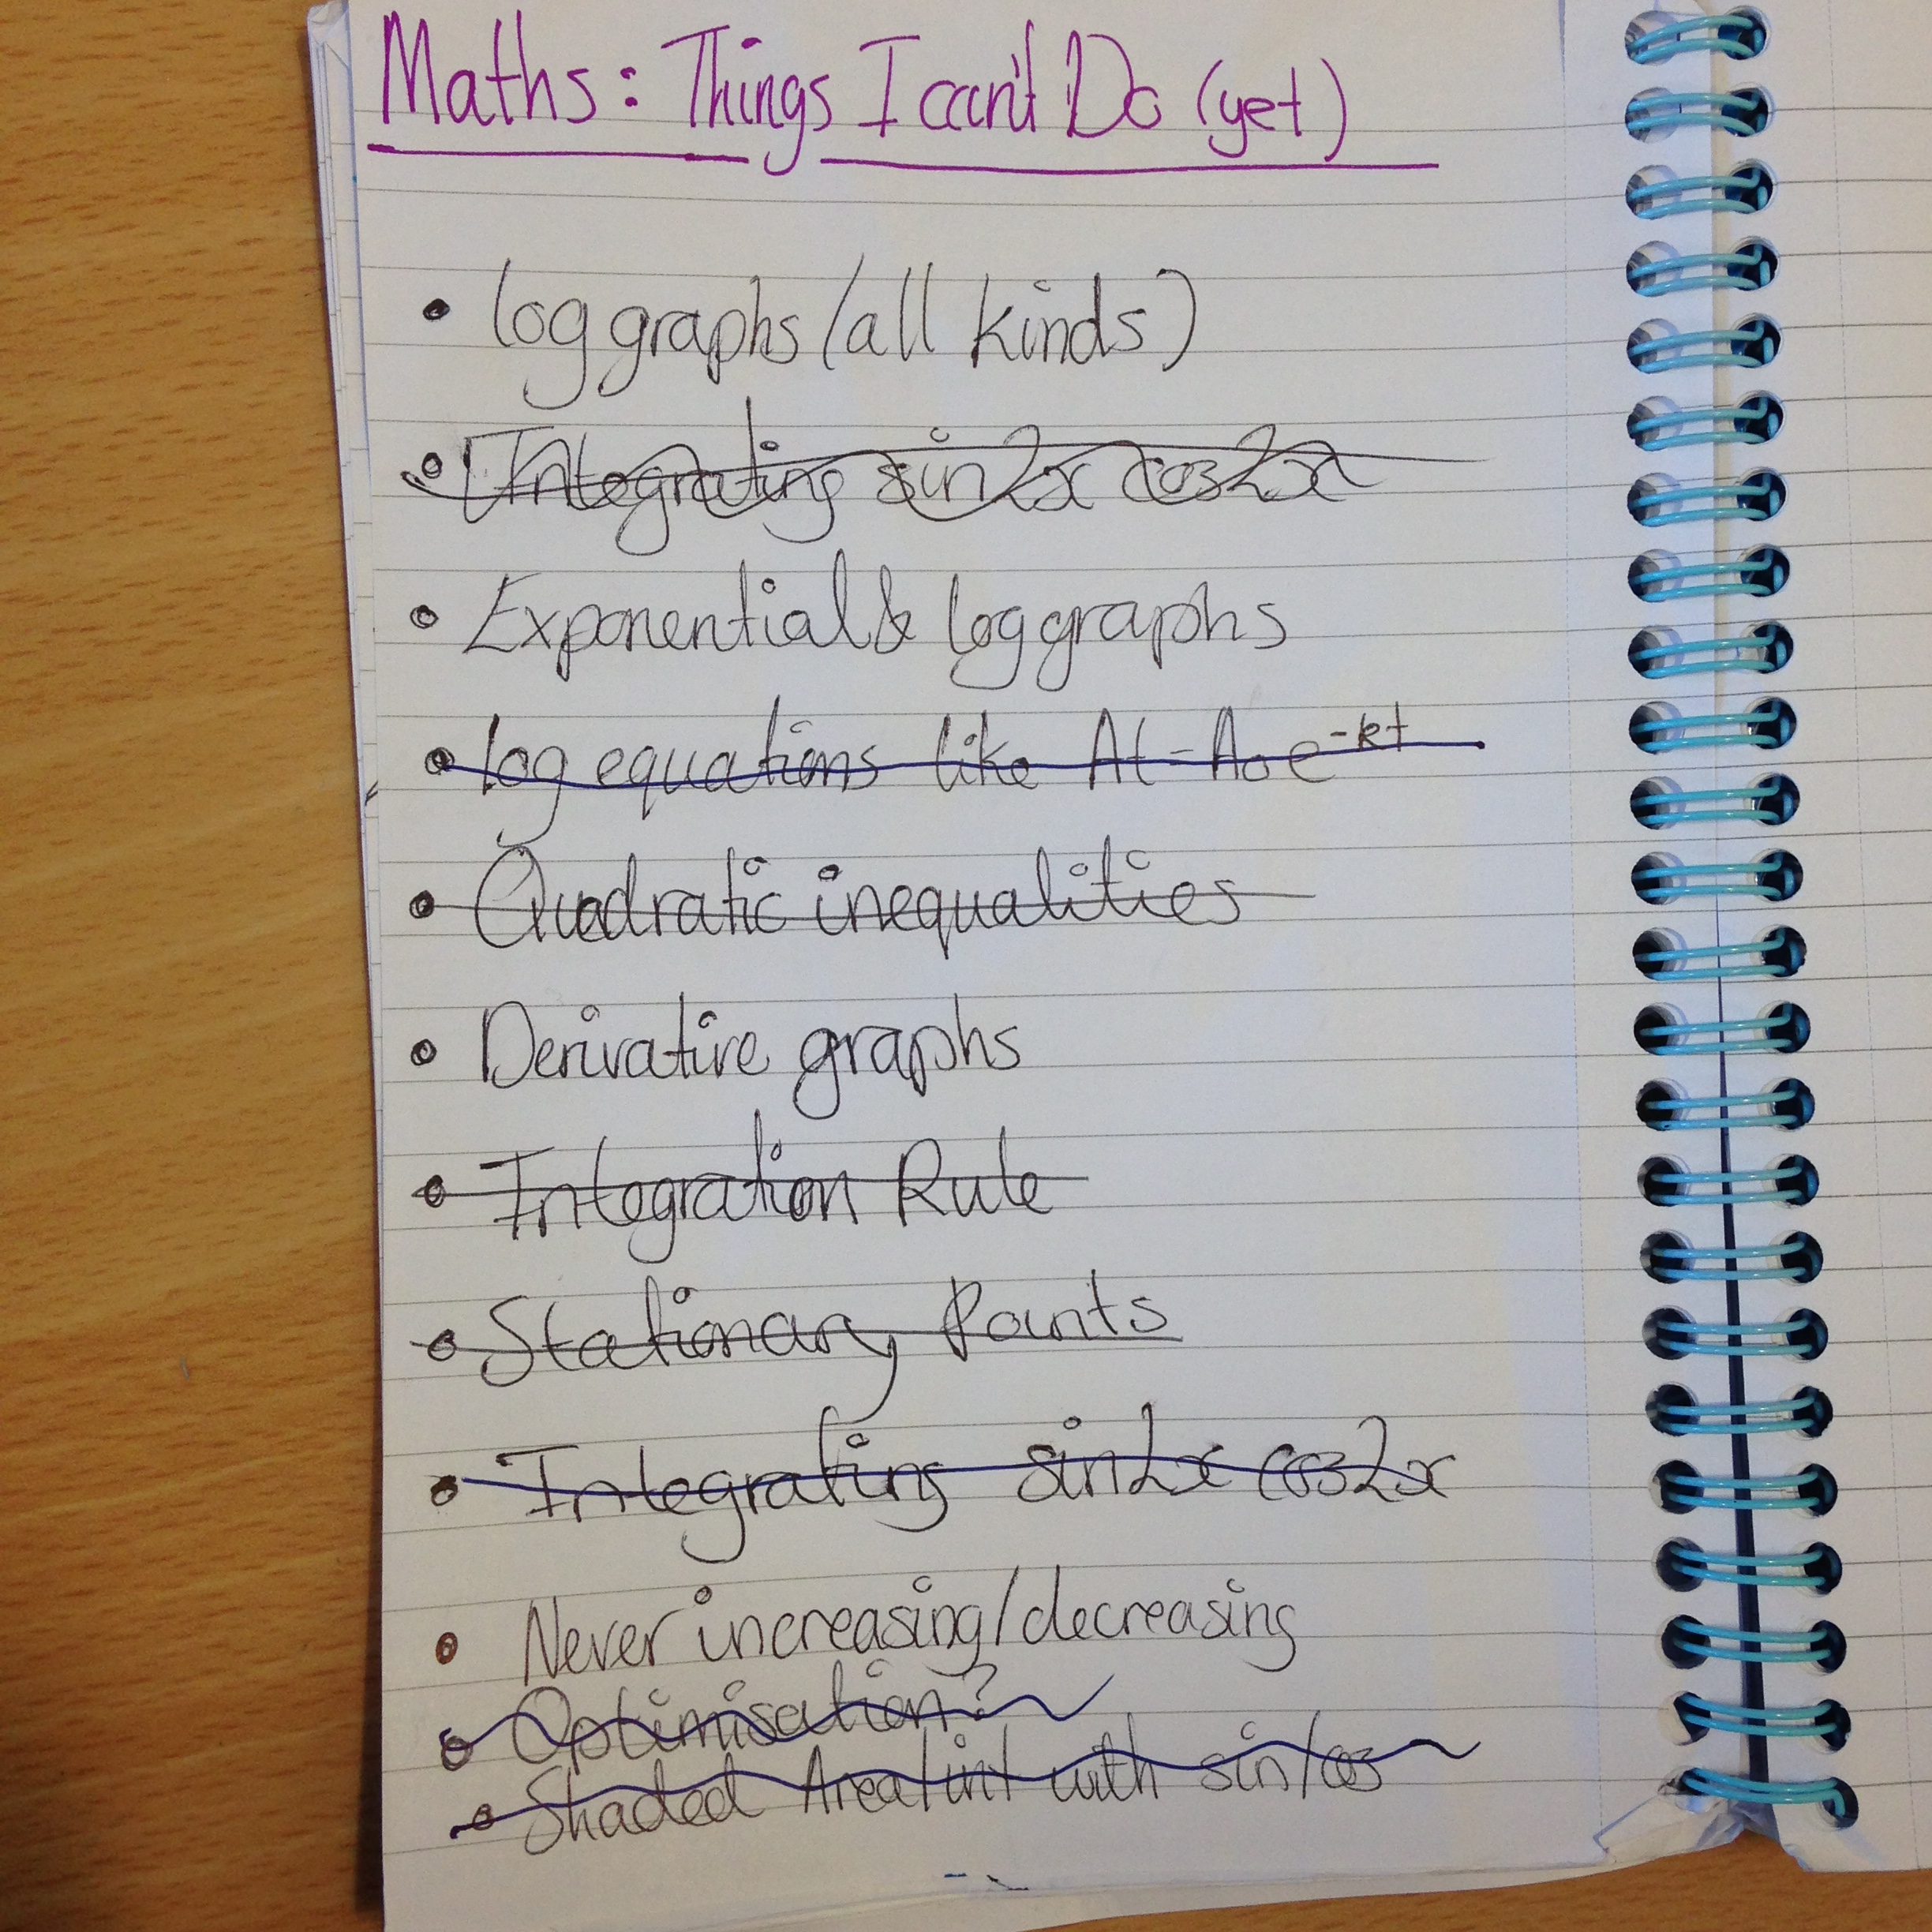 Maths: Things I can't Do (yet)
• log graphs (all kinds)
• Integrating sin2x cos2x
• Exponential & log graphs
• log equations like At=A₀e^-kt
• Quadratic inequalities
• Derivative graphs
• Integration Rule
• Stationary Points
• Integrating sin2x cos2x
• Never increasing/decreasing
• Optimisation?
• Shaded Area/int with sin/cos